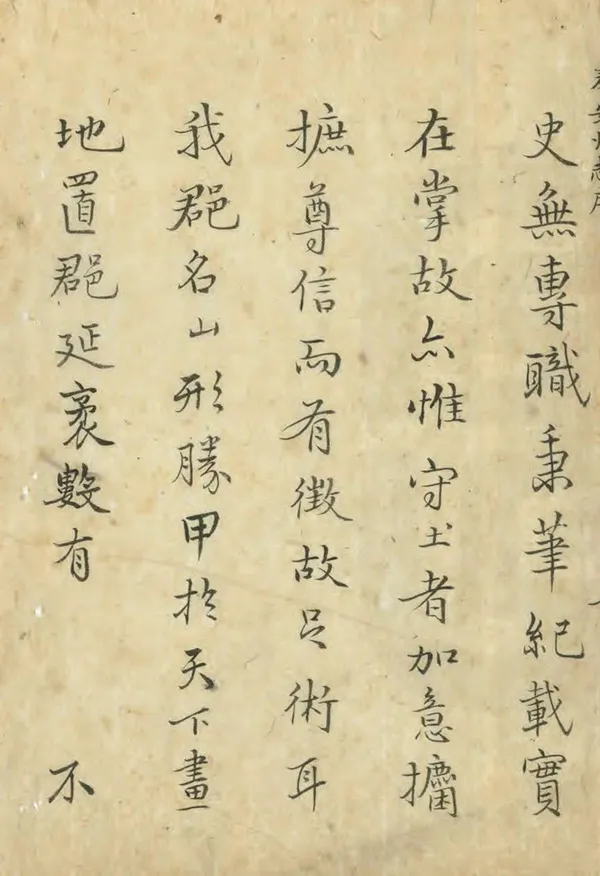 史無專職秉筆紀載實
在掌故亦惟守土者加意攟
摭尊信而有徵故足術耳
我郡名山形勝甲於天下畫
地置郡延袤數有 不